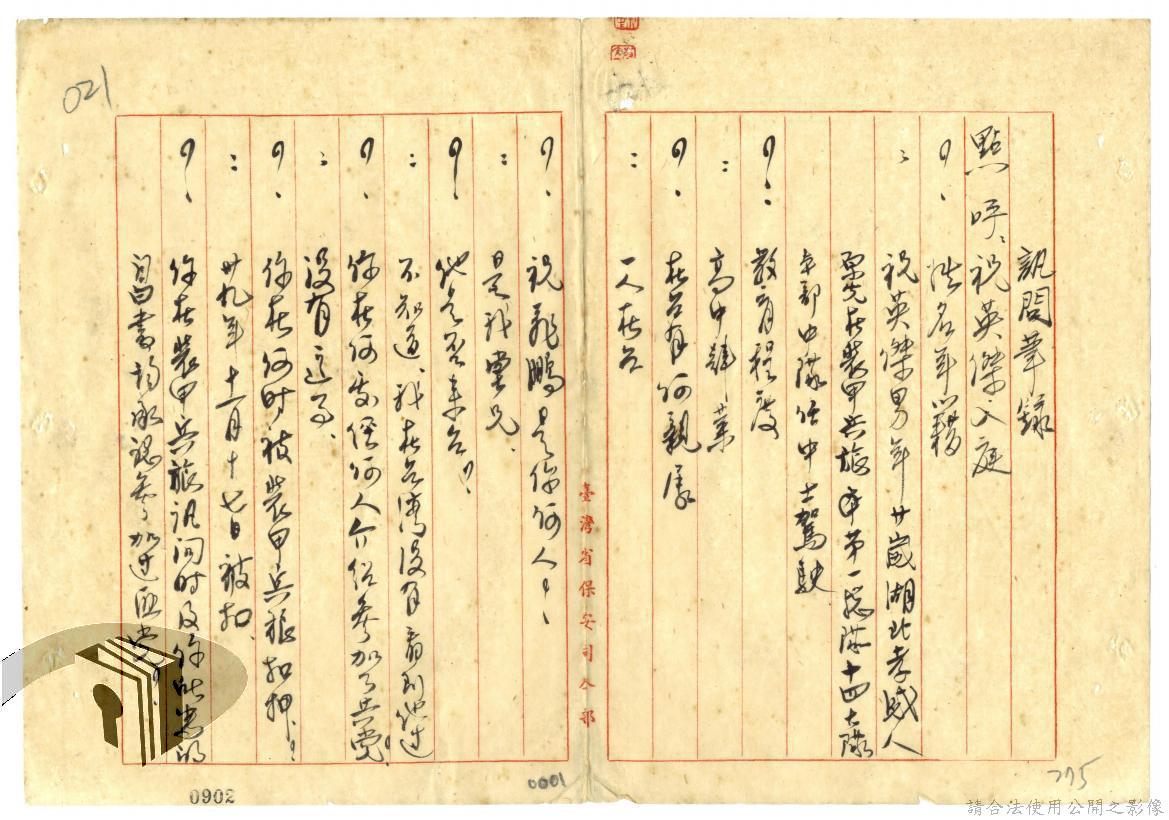 訊問筆錄
點呼祝英傑入庭
?、姓名年籍
：祝英傑男年廿歲湖北孝感人
原先在裝甲兵旅第一總隊十四大隊
本部中隊任中士駕駛
?：教育程度
：高中肄業
?、在台有何親屬
：一人在台
臺灣省保安司令部
?、祝飛鵬是你何人？
：是我堂兄、
?、他是否來台？
：不知道、我在台灣沒有看到他過
?、你在何處經何人介紹參加共黨？
：沒有這事、
?、你在何時被裝甲兵旅扣押？
：卅九年十一月十七日被扣、
?、你在裝甲兵旅訊問時及你所寫的
自白書均承認參加過匪黨？
021
0902
0001
775
請合法使用公開之影像